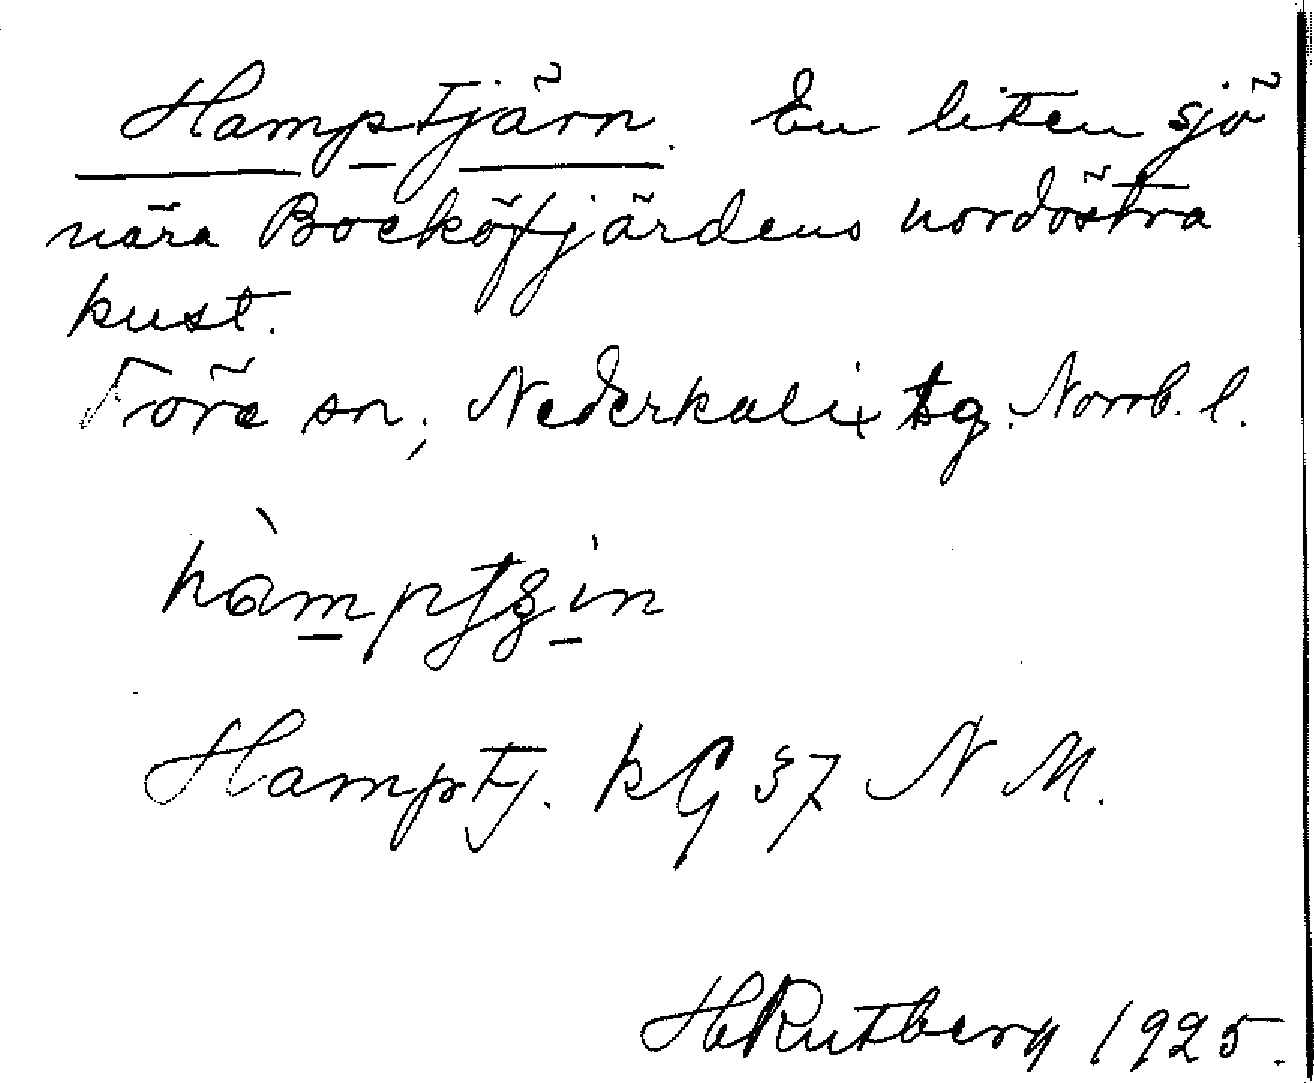 Hamptjärn. En liten sjö
nära Bocköfjärdens nordöstra
kust.
Töre sn, Nederkalix tg. Norrb. l.
Hamptj. kG 37 N M.
H Rutberg 1925.